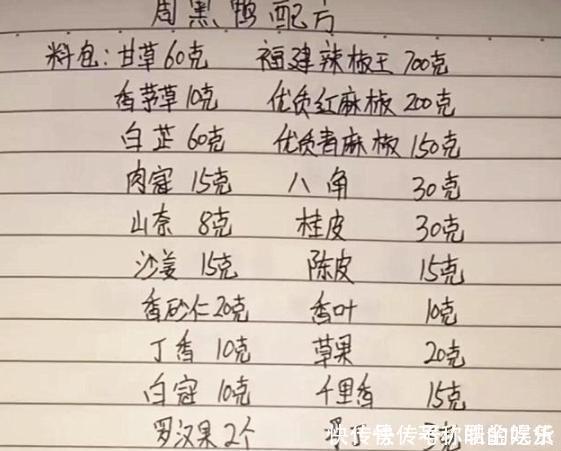 周黑鸭配方
料包:甘草60克 福建辣椒王700克
香茅草10克 优质红麻椒200克
白芷60克 优质青麻椒150克
肉寇15克 八角 30克
山奈 8克 桂皮 30克
沙姜 15克 陈皮 15克
香砂仁20克 香叶 10克
丁香 10克 草果 20克
白寇 10克 千里香 15克
罗汉果2个